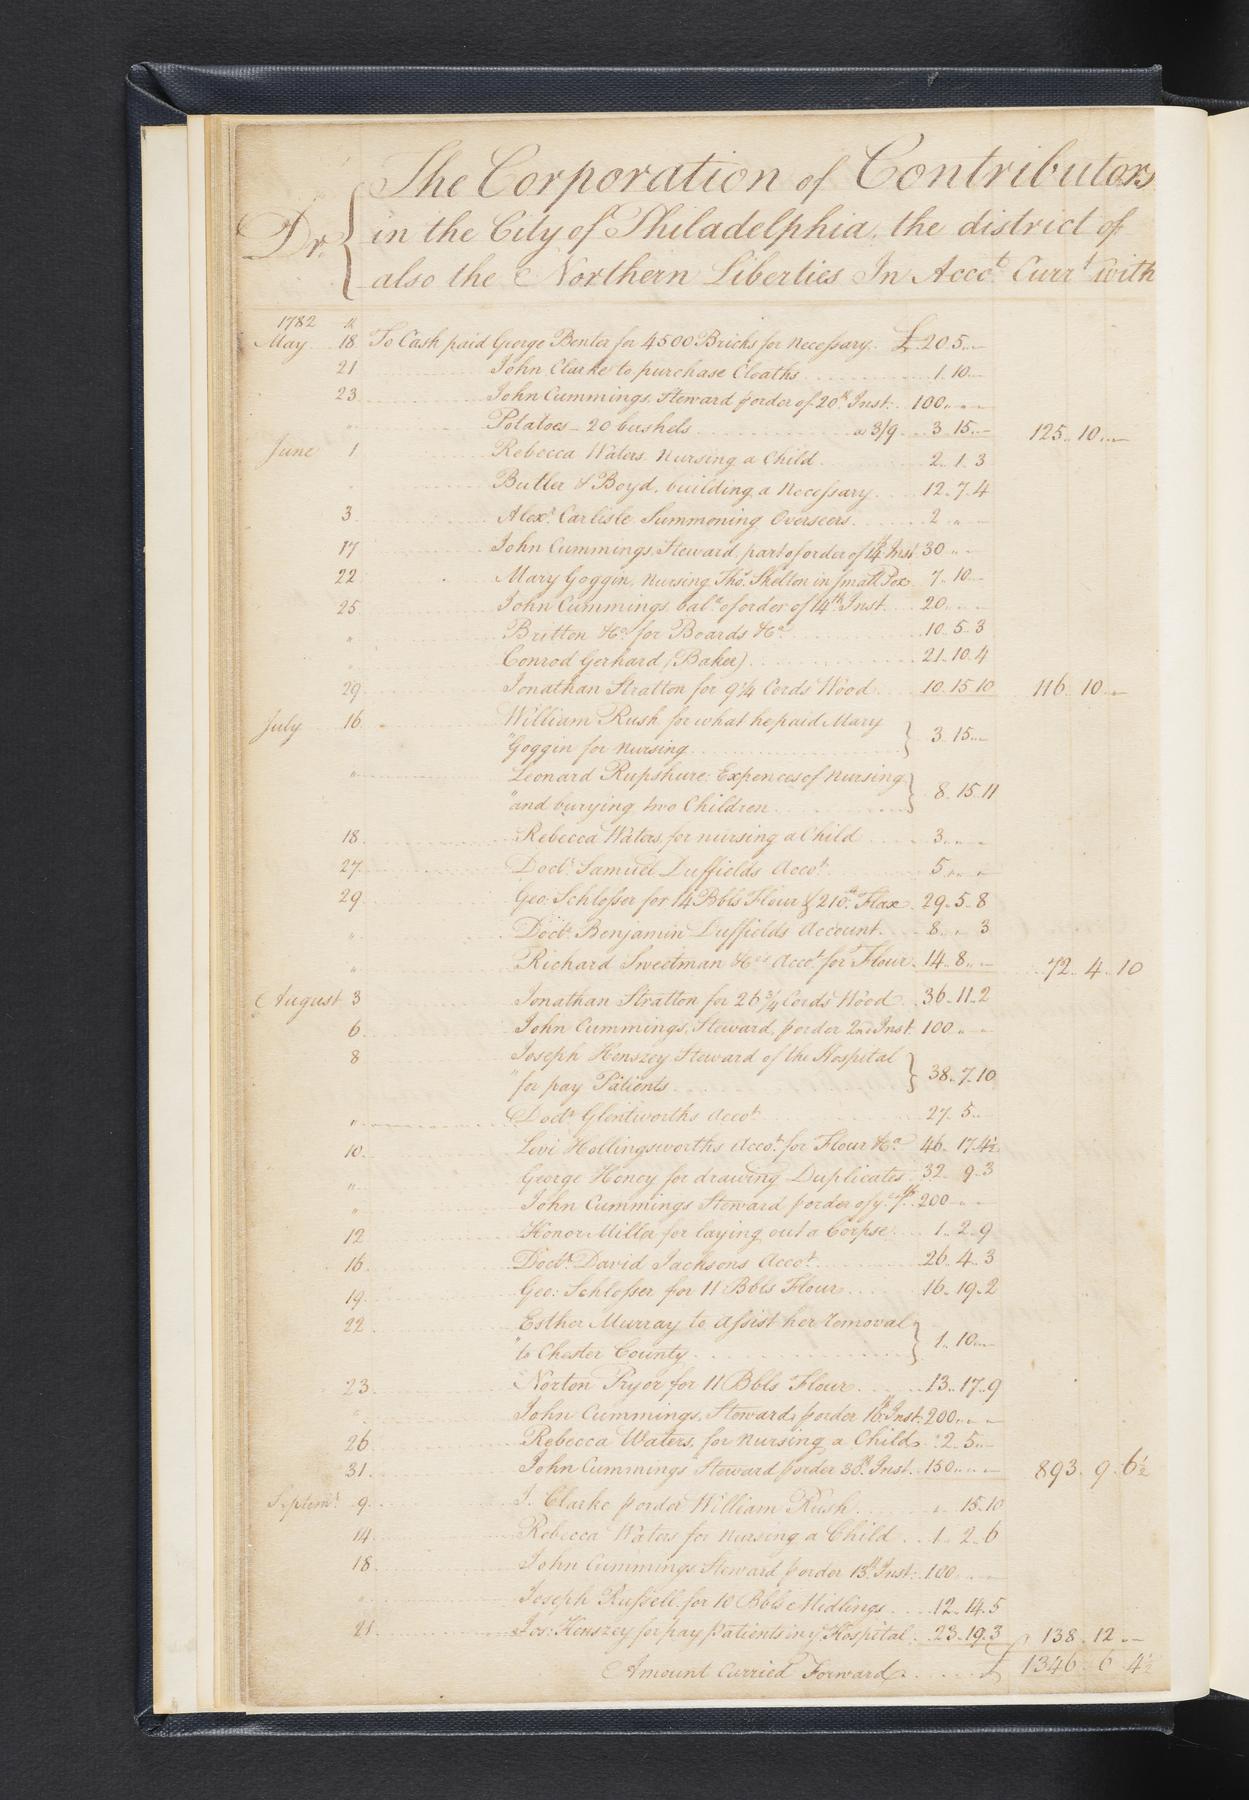 Dr. The Corporation of Contributors
in the City of Philadelphia, the district of
also the Northern Liberties In Accot. Currt. with
1782
May 18 To Cash paid George Benter for 4500 Bricks for Necessary £ 20.. 5..—
21 John Clarke to purchase Cloaths 1.. 10..—
23 John Cummings, Steward p order of 20th Inst. 100..—..—
" Potatoes — 20 bushels a 3/9 3.. 15..— 125.. 10..—
June 1 Rebecca Waters Nursing a Child 2.. 1.. 3
" Butler & Boyd, building a Necessary 12.. 7.. 4
3 Alexr. Carlisle Summoning Overseers 2 " —
17 John Cummings, Steward, part of order of 14th Inst 30 " —
22 Mary Goggin, nursing Thos. Skelton in small Pox 7.. 10..—
25 John Cummings bale. of order of 14th Inst. 20..—..—
" Britton &ca. for Boards &ca. 10.. 5.. 3
" Conrod Gerhard (Baker) 21.. 10.. 4
29 Jonathan Stratton for 9 1/4 Cords Wood 10.. 15.. 10 116.. 10..—
July 16 William Rush for what he paid Mary
"Goggin for Nursing 3.. 15..—
" Leonard Rupshure, Expences of Nursing
"and burying two Children 8.. 15.. 11
18 Rebecca Waters, for nursing a Child 3..—..—
27 Doctr. Samuel Duffields Accot. 5..—..—
29 Geo: Schlosser for 14 Bbls Flour & 210 Flax 29.. 5.. 8
" Doctr. Benjamin Duffields Account 8.. ".. 3
" Richard Sweetman &Cos Accot. for Flour 14.. 8..— 72.. 4.. 10
August 3 Jonathan Stratton for 26 3/4 Cords Wood 36.. 11.. 2
6 John Cummings, Steward, p order 2nd Inst. 100 " —
8 Joseph Henszey Steward of the Hospital
"for pay Patients 38.. 7.. 10
" Doctr. Glentworths Accot. 27.. 5..—
10 Levi Hollingsworths Accot. for Flour &ca 46.. 17.. 4 1/2
" George Honey for drawing Duplicates 32.. 9.. 3
" John Cummings Steward p order of ye. 7th 200 " —
12 Honor Miller for laying out a Corpse 1.. 2.. 9
16 Doctr. David Jacksons Accot. 26.. 4.. 3
19 Geo: Schlosser for 11 Bbls Flour 16.. 19.. 2
22 Esther Murray to Assist her removal
"to Chester County 1.. 10..—
23 Norton Pryor for 11 Bbls Flour 13.. 17.. 9
" John Cummings, Steward, p order 16th Inst. 200..—..—
26 Rebecca Waters, for nursing a Child 2.. 5..—
31 John Cummings Steward p order 30th Inst. 150..—..— 893.. 9.. 6 1/2
Septemr. 9 J. Clarke p order William Rush " 15.. 10
14 Rebecca Waters for nursing a Child 1.. 2.. 6
18 John Cummings Steward p order 13th Inst: 100..—..—
" Joseph Russell for 10 Bbls Midlings 12.. 14.. 5
21 Jos: Henszey for pay Patients in ye. Hospital 23.. 19.. 3 138.. 12..—
Amount Carried Forward £ 1346.. 6.. 4 1/2